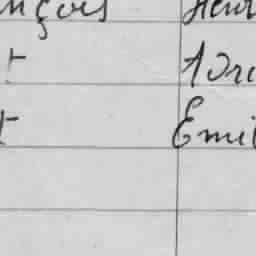 nçois Henr
t Adri
t Emil